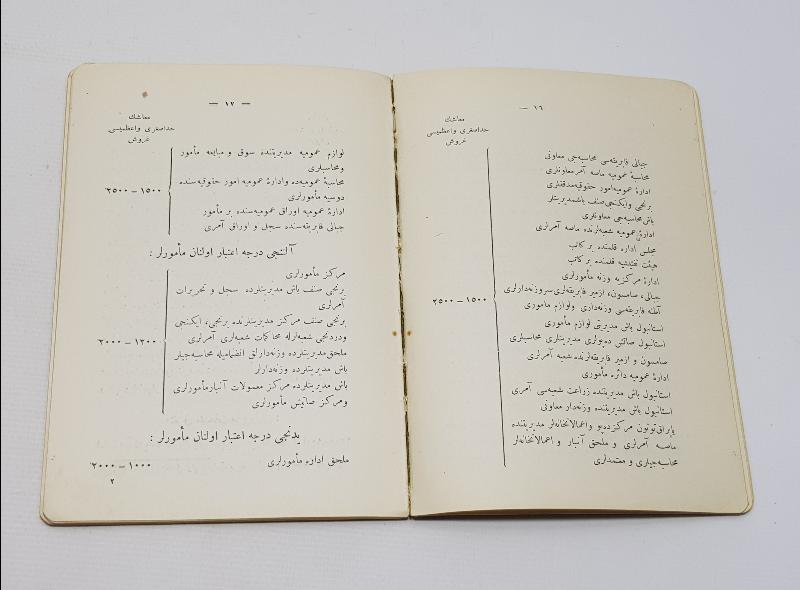 — ١٦ —
معاشك
حداصغری واعظمیسی
غروش
جبالی فابریقه‌سی محاسبه‌جی معاونی
محاسبهٔ عمومیه ماصه آمرمعاونلری
ادارهٔ عمومیه‌امور حقوقیه‌مدققلری
برنجی وایکنجی‌صنف باشمدیریتلر
باش‌محاسبه‌جی معاونلری
ادارهٔ عمومیه شعبه‌لرنده ماصه آمرلری
مجلس اداره قلمنده بر کاتب
هیئت تفتیشیه قلمنده بر کاتب
ادارهٔ مرکزیه وزنه مأمورلری
جبالی، صامسون، ازمیر فابریقه‌لری‌سروزنه‌دارلری
آطنه فابریقه‌سی وزنه‌داری ولوازم مأموری
١٥٠٠ – ٢٥٠٠
استانبول باش مدیریتی لوازم مأموری
استانبول صاتش دپولری مدیریتلری محاسبلری
صامسون و ازمیر فابریقه‌لرنده شعبه آمرلری
ادارهٔ عمومیه دائره مأموری
استانبول باش مدیریتنده زراعت شعبه‌سی آمری
استانبول باش مدیریتنده وزنه‌دار معاونی
یاپراق‌توتون مرکزدپو واعمالاتخانه‌لر مدیریتنده
ماصه آمرلری و ملحق آنبار واعمالاتخانه‌لر
محاسبه‌جیلری و معتمدلری
— ١٧ —
معاشك
حداصغری واعظمیسی
غروش
لوازم عمومیه مدیریتنده سوق و مبایعه مأمور
ومحاسبلری
محاسبهٔ عمومیه‌ده وادارهٔ عمومیه امور حقوقیه‌سنده
١٥٠٠ – ٢٥٠٠
دوسیه مأمورلری
ادارهٔ عمومیه اوراق عمومیه‌سنده بر مأمور
جبالی فابریقه‌سنده سجل و اوراق آمری
آلتنجی درجه اعتبار اولنان مأمورلر :
مرکز مأمورلری
برنجی صنف باش مدیریتلرده سجل و تحریرات
آمرلری
برنجی صنف مرکز مدیریتلرنده برنجی، ایکنجی
ودردنجی شعبه‌لرله محاکمات شعبه‌لری آمرلری
١٢٠٠ – ٢٠٠٠
ملحق‌مدیریتلرده وزنه‌دارلق انضمامیله محاسبه‌جیلر
باش مدیریتلرده وزنه‌دارلر
باش مدیریتلرده مرکز معمولات آنبارمأمورلری
ومرکز صاتیش مأمورلری
یدنجی درجه اعتبار اولنان مأمورلر :
ملحق اداره مأمورلری ١٠٠٠ – ٢٠٠٠
٢